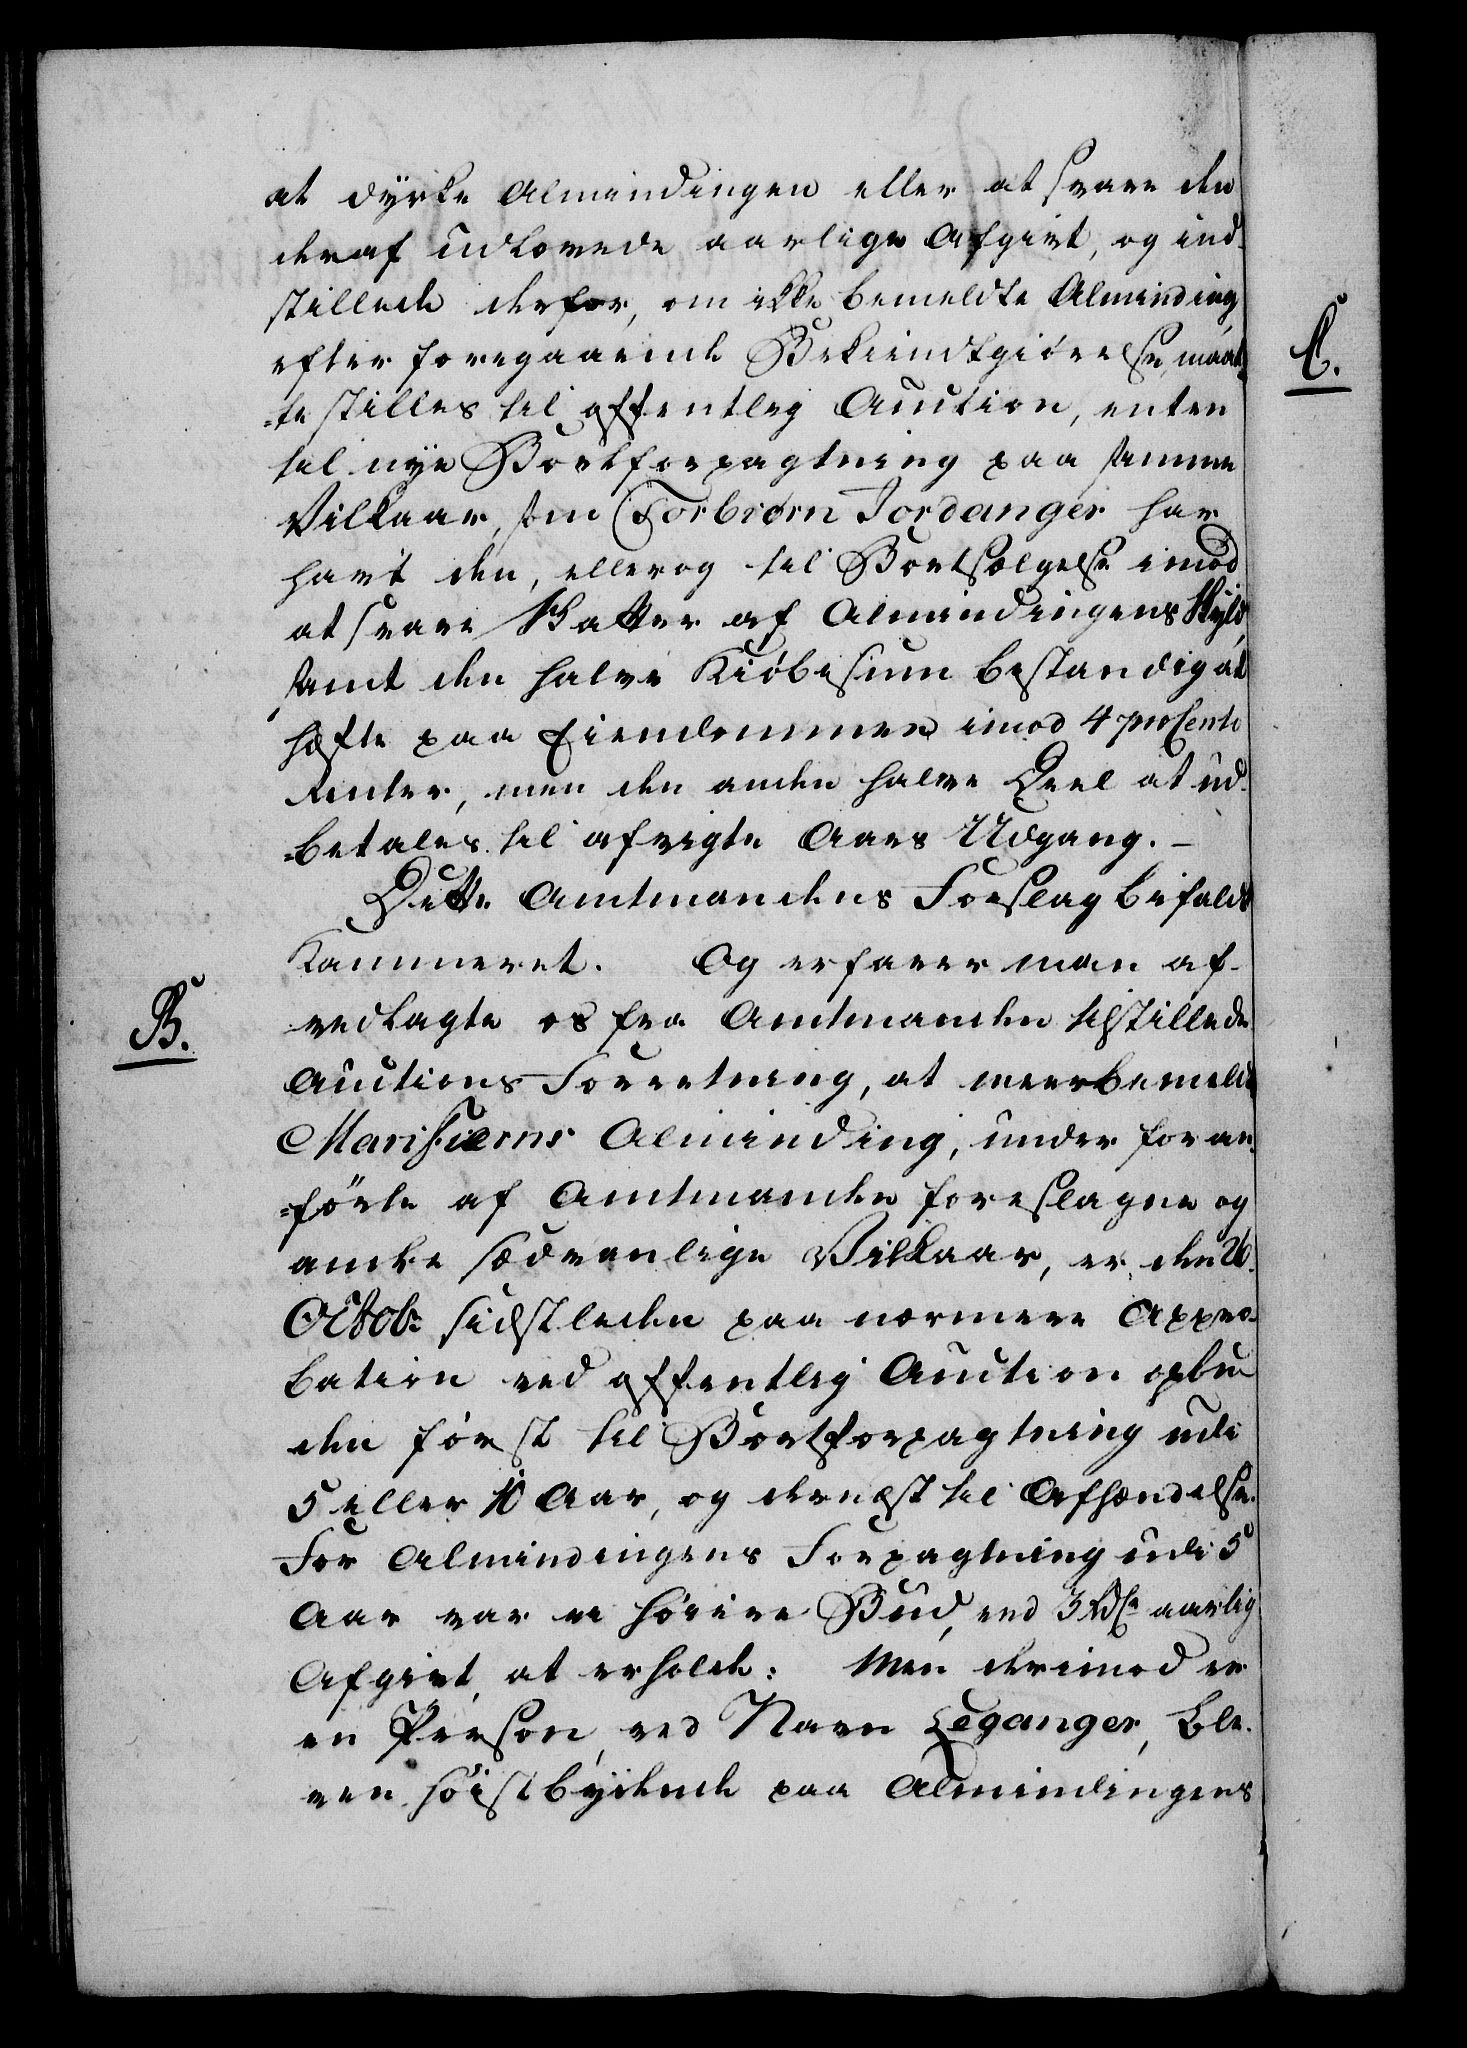 at dÿrke Almindingen eller at svare den
deraf udlovede aarlige Afgivt, og ind-
stillede derfor, om ikke bemeldte Alminding,
efter foregaaende Bekiendtgiörelse, maat-
C.
=te stilles til offentlig Auction, enten
til nÿe Bortforpagtning paa samme
Vilkaar, som Torbiørn Jordanger har
havt den, eller og til Bortsælgelse imod
at svare Skatter af Almindingens Skyld,
samt den halve Kiöbesum bestandig at
hæfte paa Eiendommen imod 4 proCento
Renter, men den anden halve Deel at ud-
=betales til afvigte Aars Udgang. –
Dette Amtmandens Forslag bifaldt
Kammeret. Og erfarer man af
B.
vedlagte os fra Amtmanden tilstillede
Auctions-Forretning, at meerbemeldte
Marifiærns Alminding, under foran-
=förte af Amtmanden foreslagne og
andre sædvanlige Vilkaar, er den 26.
Octobr: sidstleden paa nærmere Appro-
bation ved offentlig Auction opbu-
den först til Bortforpagtning udi
5 eller 10 Aar, og dernæst til Afhændelse.
For Almindingens Forpagtning udi 5
Aar var ei höiere Bud, end 3 Rdlr aarlig
Afgivt, at erholde: Men derimod er
en Person, ved Navn Leganger, ble-
ven höistbÿdende paa Almindingens